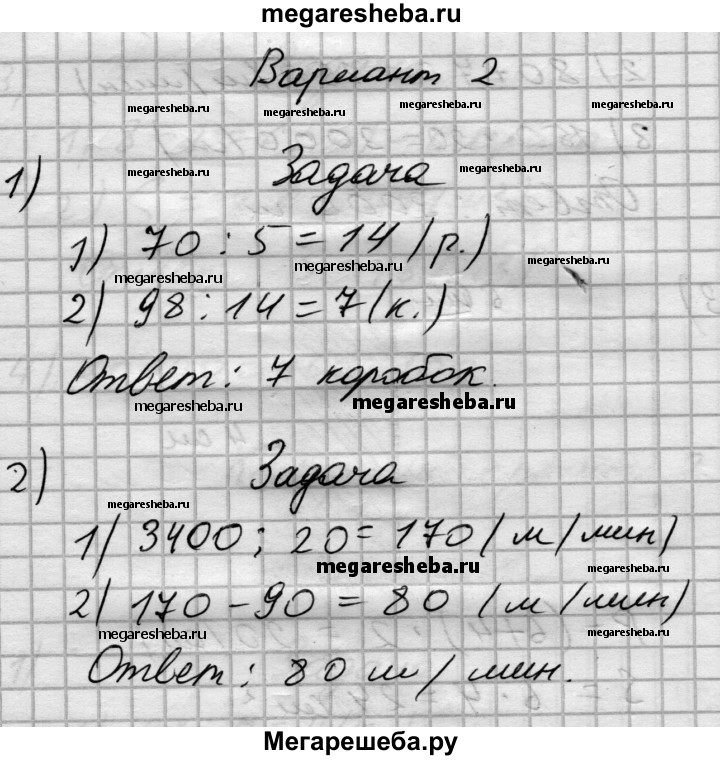 megaresheba.ru
Вариант 2
megaresheba.ru megaresheba.ru megaresheba.ru megaresheba.ru
1) Задача
megaresheba.ru megaresheba.ru
1) 70 : 5 = 14 (р.)
megaresheba.ru megaresheba.ru megaresheba.ru
2) 98 : 14 = 7 (к.)
Ответ: 7 коробок.
megaresheba.ru megaresheba.ru
2) Задача
megaresheba.ru
1) 3400 : 20 = 170 (м/мин)
megaresheba.ru megaresheba.ru
2) 170 - 90 = 80 (м/мин)
megaresheba.ru megaresheba.ru
Ответ: 80 м/мин.
Мегарешеба.ру